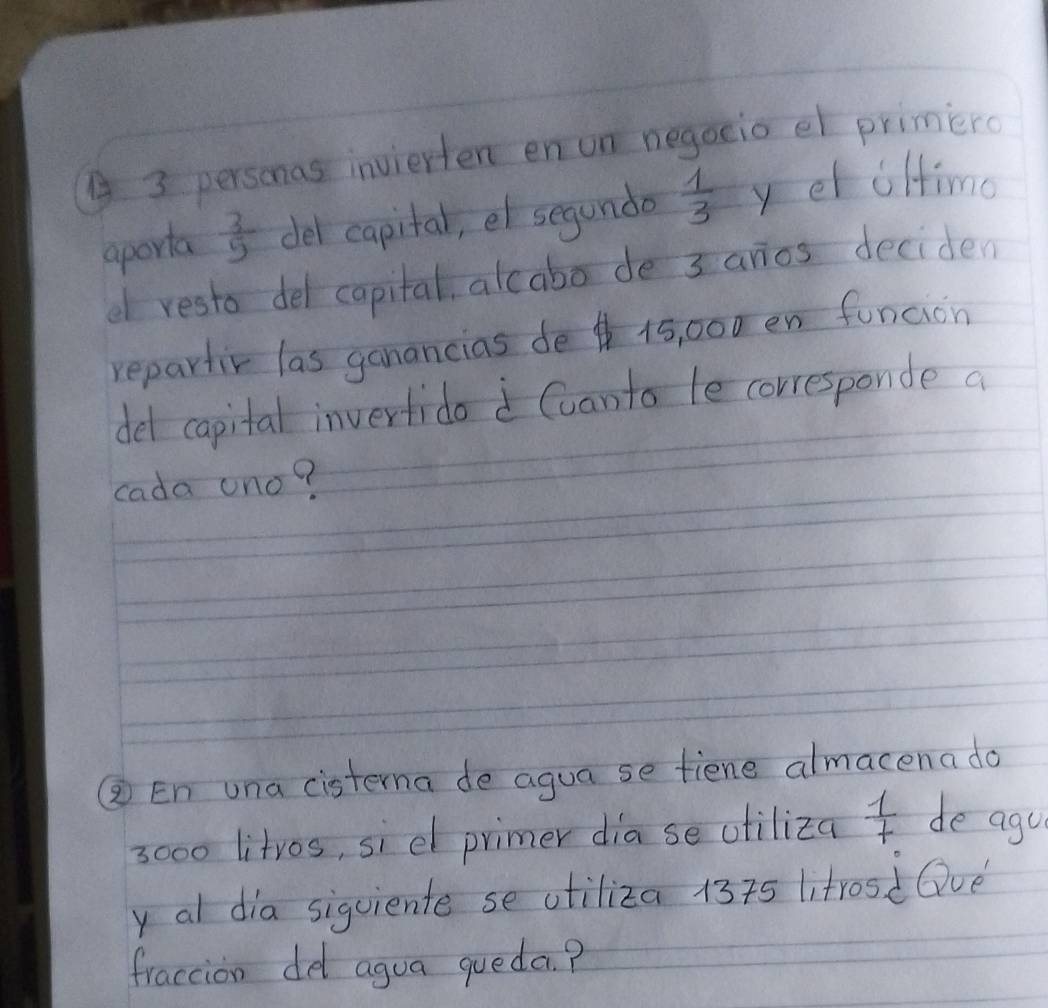 ① 3 personas invierten en un negocio el primero
aporta 3/5 del capital, el segundo 1/3 y el último
el resto del capital. alcabo de 3 años deciden
repartir las ganancias de $ 15,000 en función
del capital invertido ¿ Cuanto le corresponde a
cada uno?
② En una cisterna de agua se tiene almacenado
3000 litros, si el primer día se utiliza 1/7 de agua
y al día siguiente se utiliza 1375 litros ¿ Qué
fracción del agua queda?